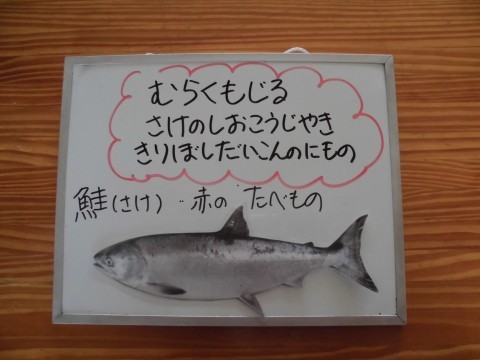 むらくもじる
さけのしおこうじやき
きりぼしだいこんのにもの
鮭(さけ)‥赤の たべもの